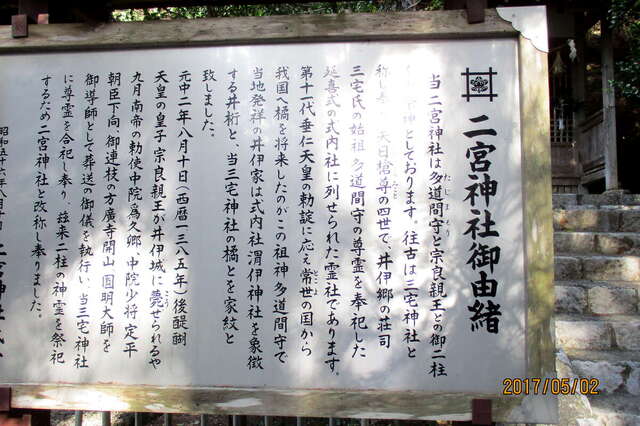 二宮神社御由緒
当二宮神社は多道間守と宗良親王との御二柱
神としております。往古は三宅神社と
称し 天日槍尊の四世で、井伊郷の荘司
三宅氏の始祖多道間守の尊霊を奉祀した
延喜式の式内社に列せられた霊社であります。
第十一代垂仁天皇の勅諚に応え常世の国から
我国へ橘を将来したのがこの祖神多道間守で
当地発祥の井伊家は式内社渭伊神社を象徴
する井桁と、当三宅神社の橘とを家紋と
致しました。
元中二年八月十日(西暦一三八五年)後醍醐
天皇の皇子宗良親王が井伊城に薨ぜられるや
九月南帝の勅使中院為久郷、中院少将定平
朝臣下向、御連枝の方廣寺開山圓明大師を
御導師として葬送の御儀を執行い、当三宅神社
に尊霊を合祀し奉り、茲来二柱の神霊を祭祀
するため二宮神社と改称し奉りました。
昭和五十六年
二宮神社
2017/05/02